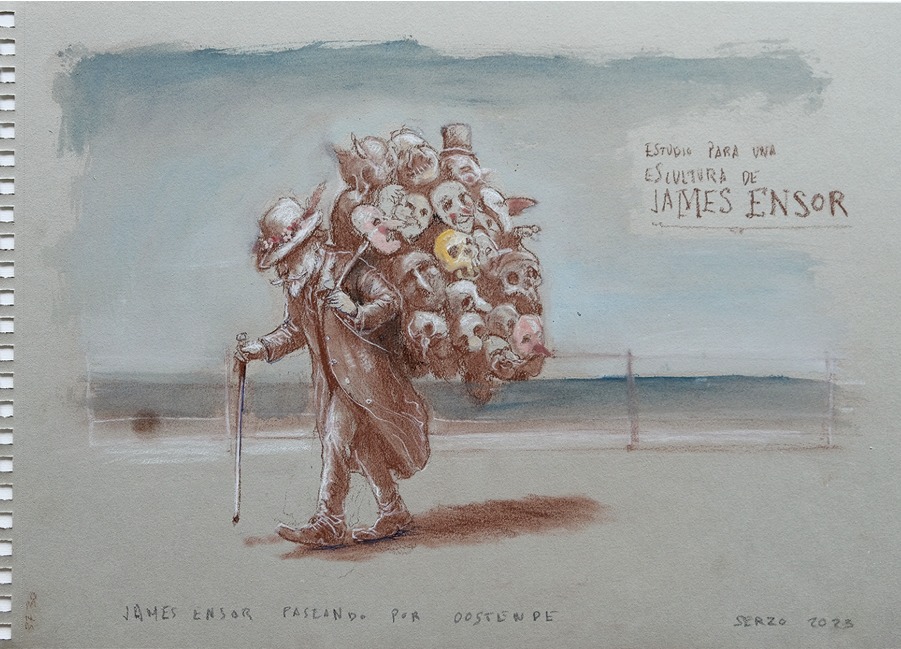 ESTUDIO PARA UNA
ESCULTURA DE
JAMES ENSOR
JAMES ENSOR PASEANDO POR OOSTENDE
SERZO 2023